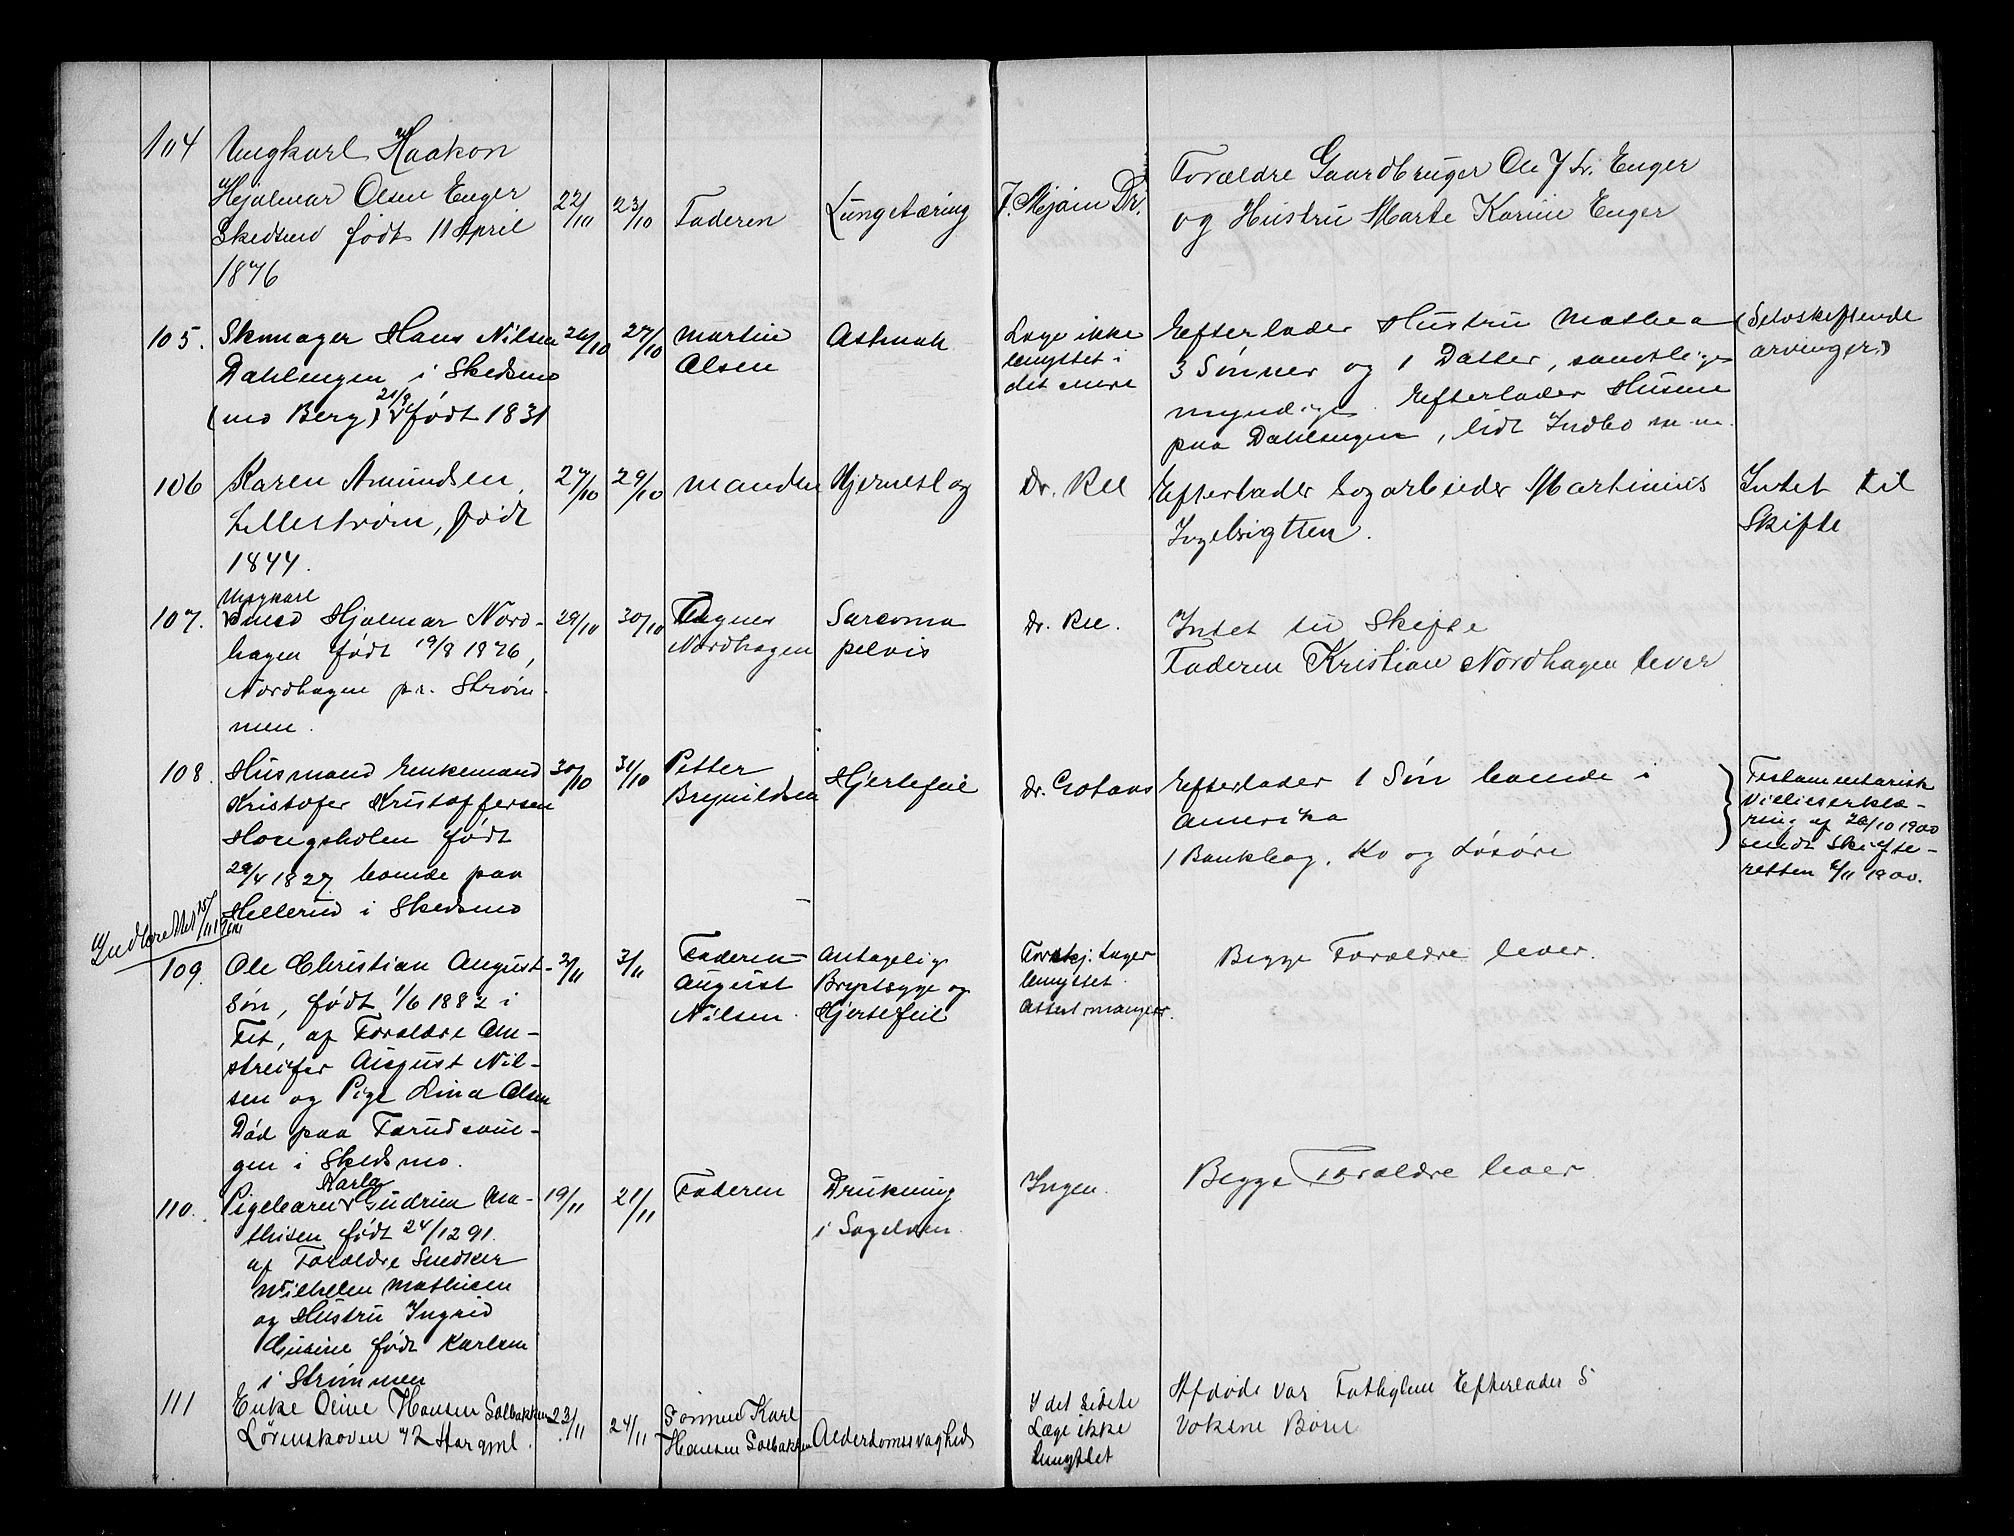 104
Ungkarl Haakon
Hjalmar Olsen Enger
Skedsmo født 11 April
1876
22/10
23/10
Faderen
Lungetæring
Dr.
Forældre Gaardbruger Ole Enger
og Hustru Marte Karine Enger
105.
Skomager Hans Nilsen
Dahlengen i Skedsmo
(mo Berg) født 1831
26/10
27/10
Martin
Olsen
Asthmah
Læge ikke
benyttet i
det mere
Efterlader Hustru Mathea
3 Sønner og 1 Datter, samtlige
myndige. Efterlader Husene
paa Dahlengen, lidt Indbo m.m.
(Selvskiftende
arvinger.)
106
Karen Amundsen,
Lillestrøm, født
1844.
27/10
29/10
Manden
Hjerneslag
Dr. Ree
Efterlader Sagarbeider Martinius
Ingebrigtsen.
Intet til
Skifte
107.
Ungkarl
Hjalmar Nord-
hagen født 19/8 1876,
Nordhagen pr. Strøm-
men.
29/10
30/10
Nordhagen
Sarcoma
pelvis
Dr. Ree.
Intet til Skifte
Faderen Kristian Nordhagen lever
108.
Husmand Enkemand
Kristofer Kristoffersen
født
29/4 1827 boende paa
Hellerud i Skedsmo
30/10
31/10
Petter
Brynildsen
Hjertefeil
Dr. Gotaas
Efterlader 1 Søn boende i
Amerika
1 Bankbog, Ko og Løsøre
Testamentarisk
Villieserklæ-
ring af 26/10 1900
sendt Skifte-
retten 2/11 1900.
Indberettet
109.
Ole Christian August-
Søn, født 1/6 1882 i
Fet, af Forældre Om-
streifer August Nil-
sen og Pige Lina Olsen
Død paa
gen i Skedsmo.
2/11
3/11
Faderen
August
Nilsen.
Antagelig
Brystsyge og
Hjertefeil
Forskj. Læger
benyttet.
Attest mangler.
Begge Forældre lever.
110.
Karla
Pigebarn Gudrun Ma-
thisen født 24/12 91.
af Forældre Snedker
Wilhelm Mathisen
og Hustru Ingrid
født Karlsen
i Strømmen
19/11
21/11
Faderen
Drukning
i Sagelven.
Ingen.
Begge Forældre lever
111
Enke Oline Hansen Solbakken
Lørenskoven 72 Aar gml.
23/11
24/11
Sønnen Karl
Hansen Solbakken
Alderdomssvaghed
I det sidste
Læge ikke
benyttet
Afdøde var Fattiglem Efterlader 5
voksne Børn